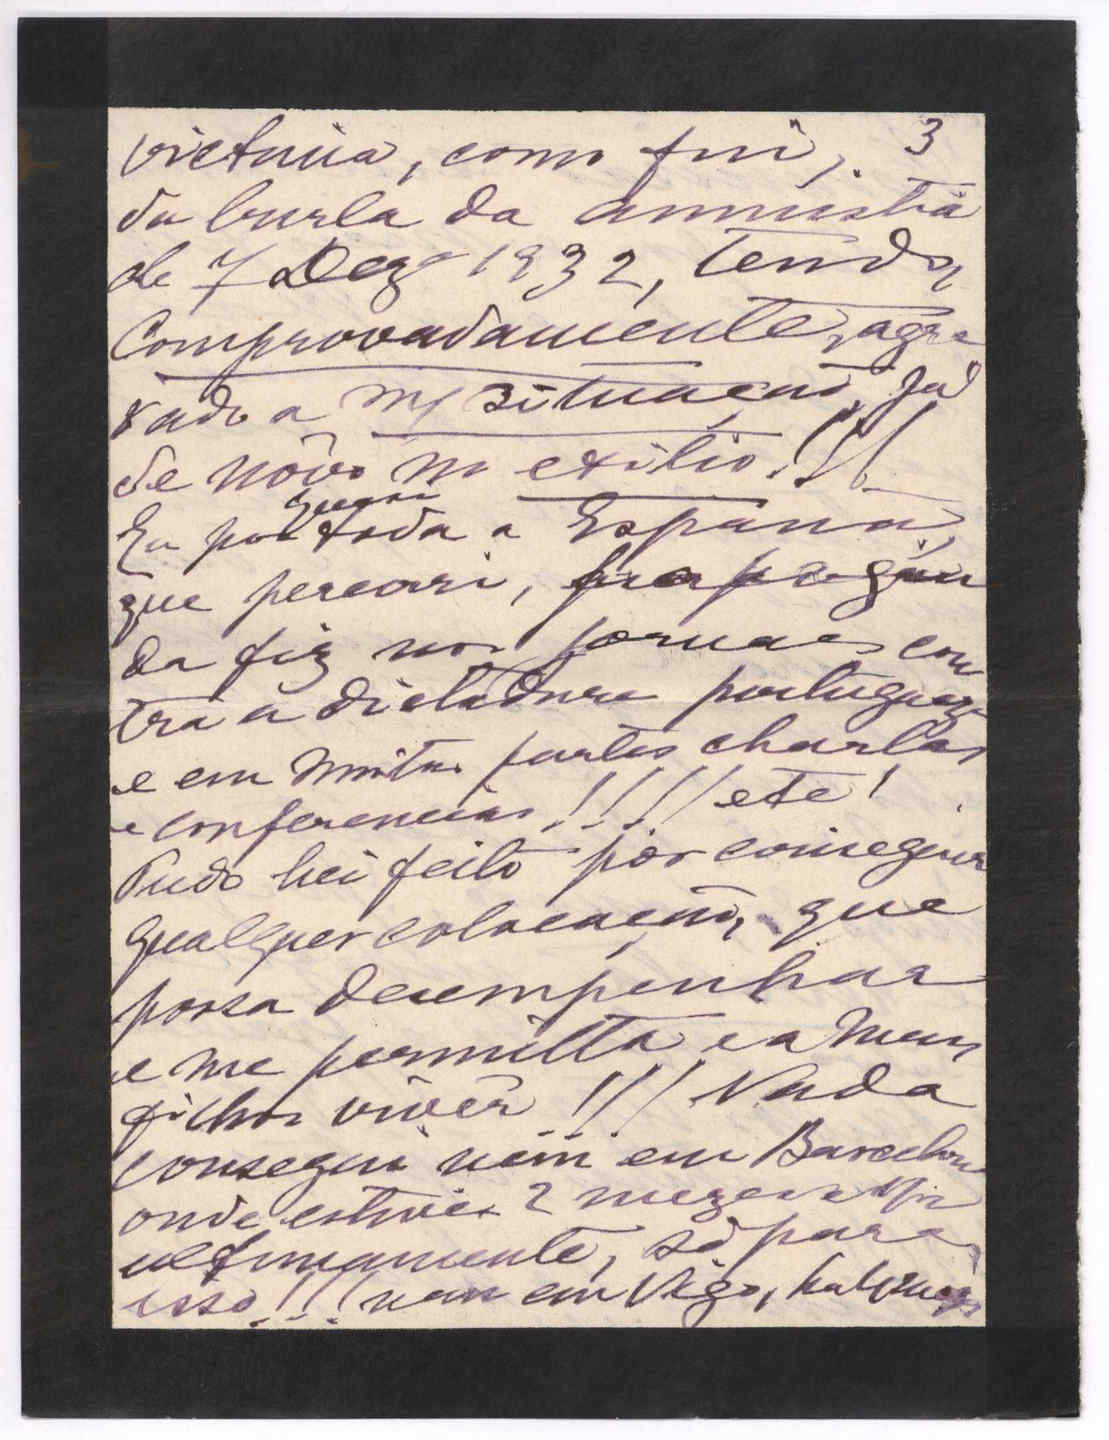 victima, como fui, 3
da burla da amnistia
de 7 Dezº 1932, tendo,
Comprovadamente, agra
vado a m/ situação, já
de nôvo no exilio!!!
Eu por quasi toda a España,
que percorri, propagan
da fiz nos jornaes con
tra a dictadura portugueza
e em muitas partes charlas
e conferencias!!!! etc!
Tudo hei feito por conseguir
qualquer colocação, que
possa desempenhar
e me permitta e a meus
filhos vivêr!!! Nada
consegui nem em Barcelona
onde estive 2 mezes e
ultimamente, só para
isso!!! nem em Vigo,